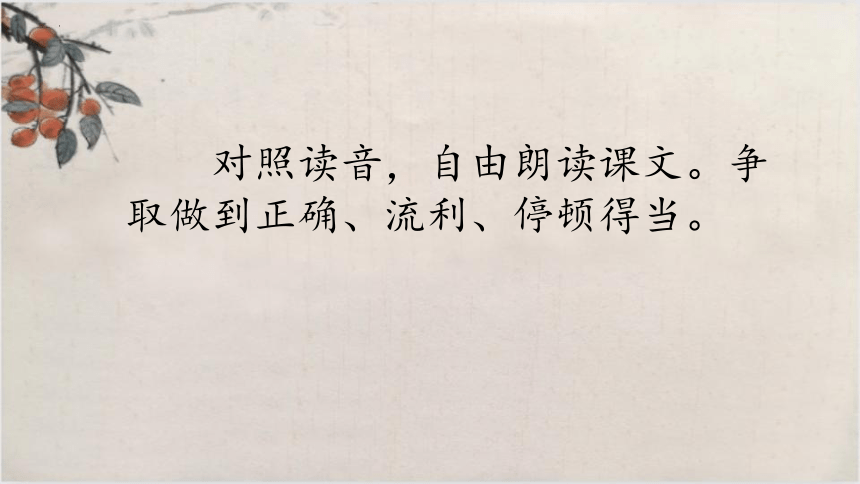 对照读音，自由朗读课文。争
取做到正确、流利、停顿得当。